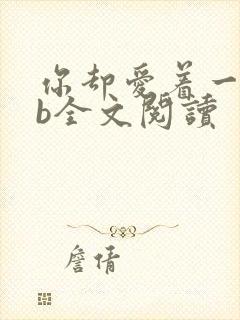 你却爱着一
b全文阅读
詹倩